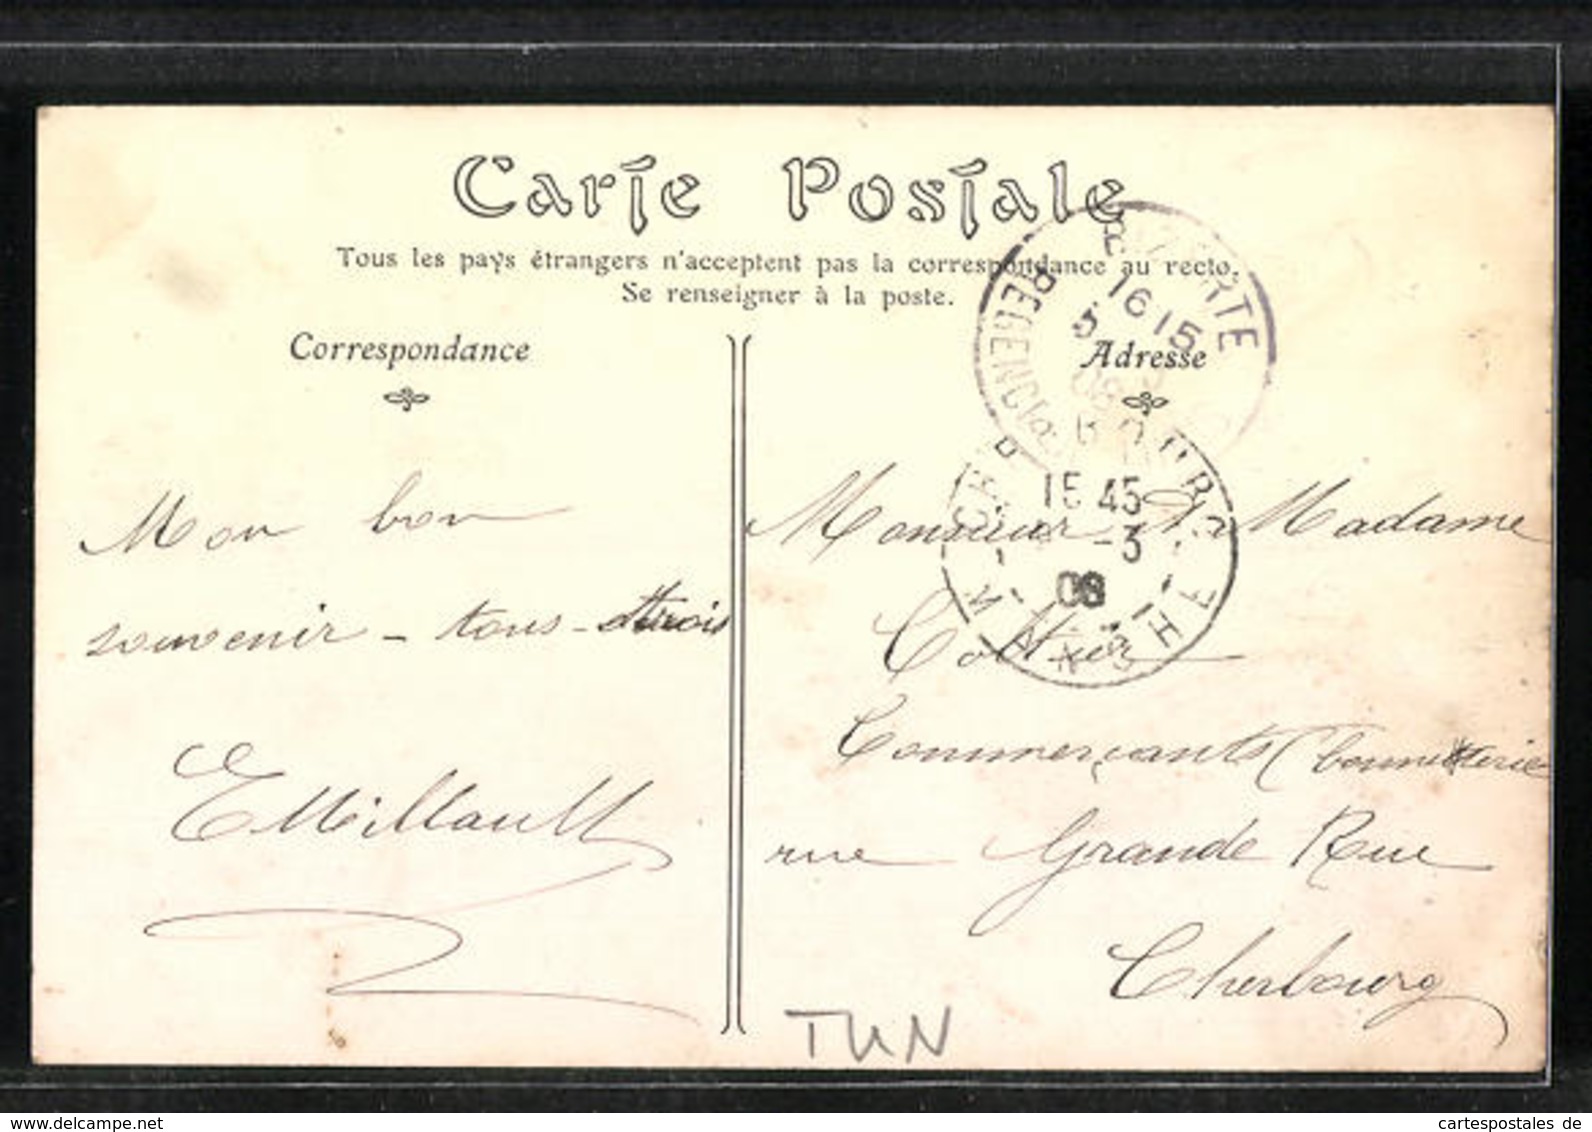 Carte Postale
Tous les pays étrangers n'acceptent pas la correspondance au recto.
Se renseigner à la poste.
Correspondance
Adresse
BIZERTE
REGENCE
16 15
5
08
15 45
-3
08
CHERBOURG
MANCHE
Mon bon
souvenir – tous – trois
EMillault
Monsieur & Madame
Commerçants (bonneterie
rue Grande Rue
Cherbourg
TUN
www.delcampe.net
cartespostales de